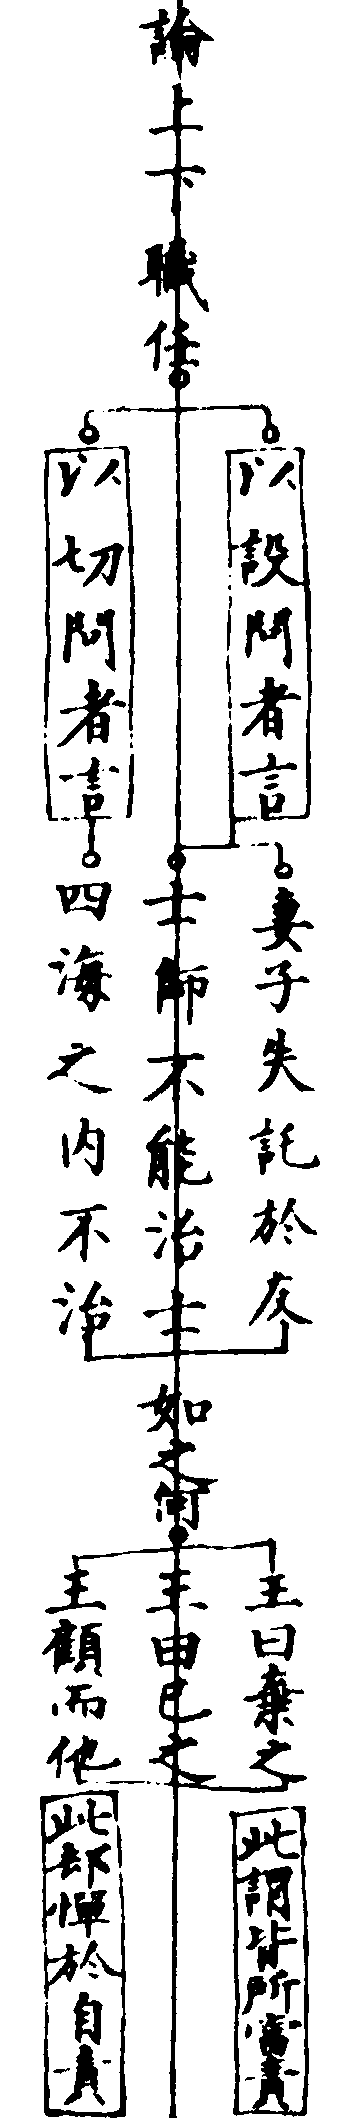 論上下職任
以設問者言
以切問者言
妻子失託於友
士師不能治士
四海之內不治
如之何
王曰棄之
王曰已之
王顧而他
此謂皆所當責
此却憚於自責